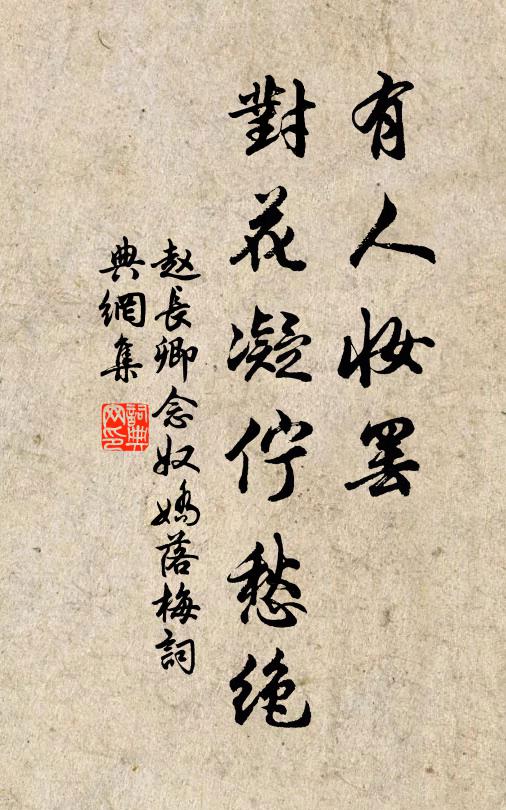 有人妝罷
對花凝佇愁绝
赵長卿念奴嬌落梅詞
典網集
詞典
网印